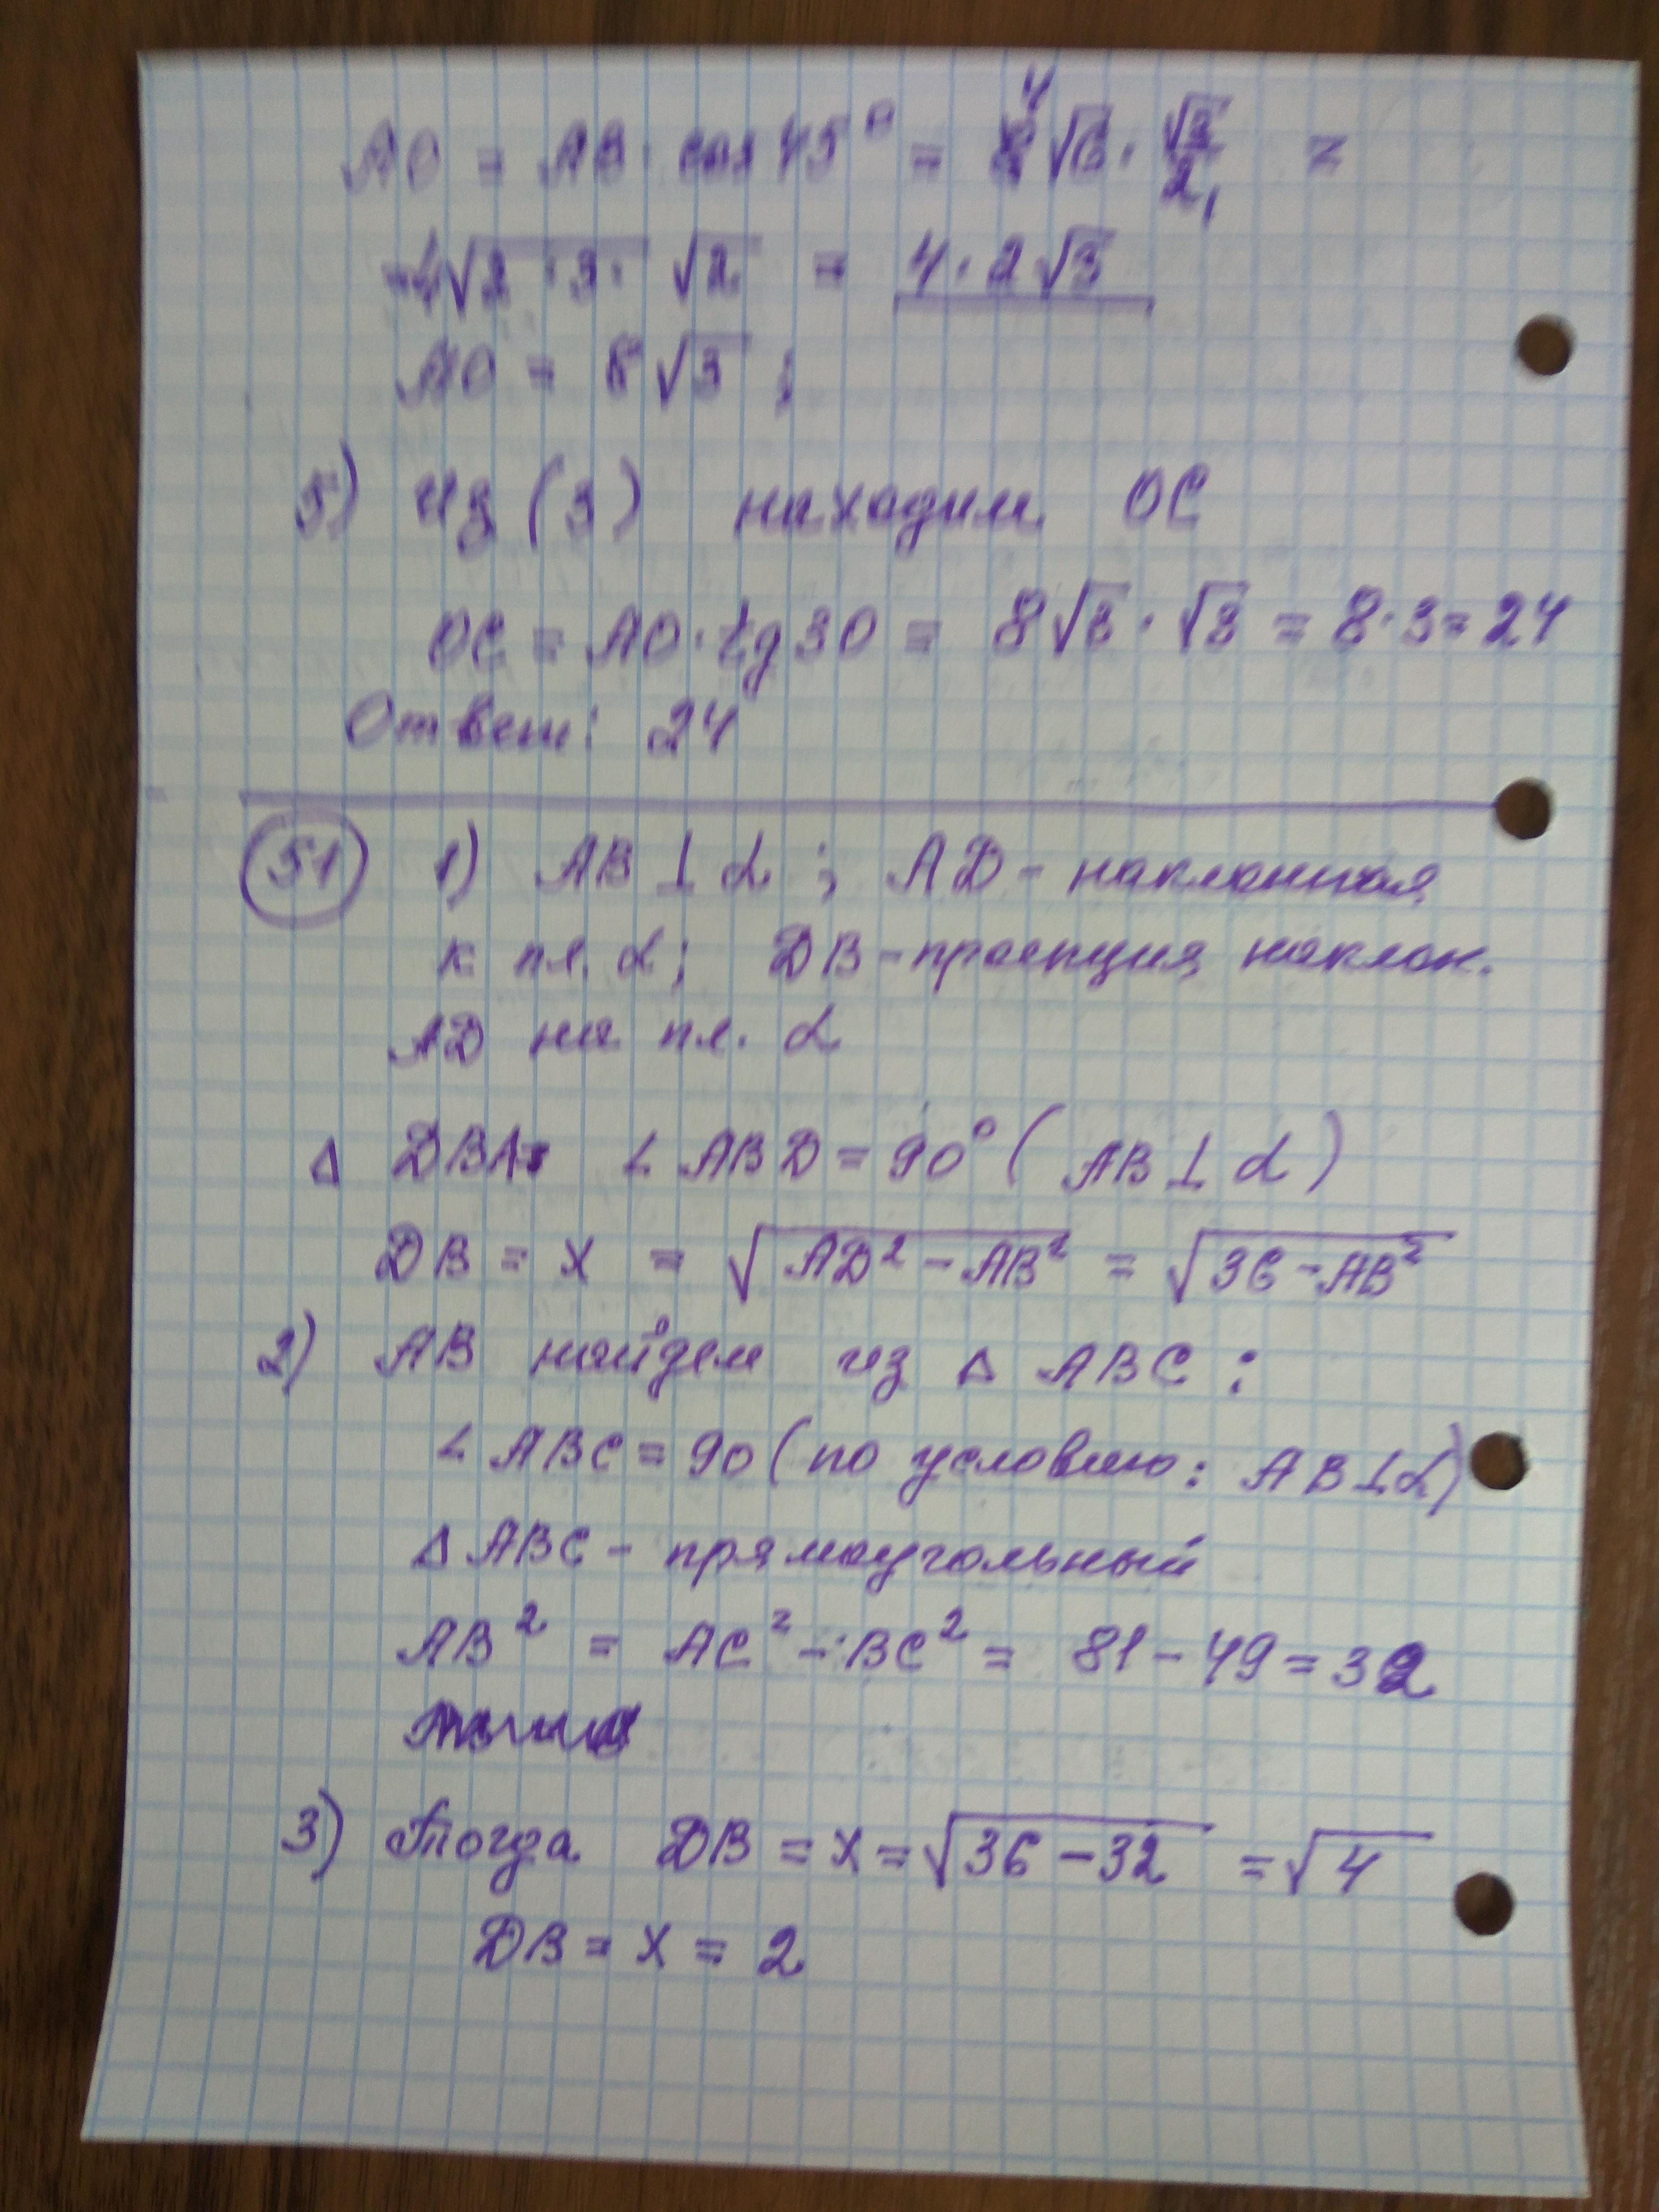 АО = АВ · cos 45° = 8 4 √6 · √2/2 1 =
= 4√2 · 3 · √2 = 4 · 2√3
АО = 8√3 ;
5) Из (3) находим ОС
ОС = АО · tg 30 = 8√3 · √3 = 8 · 3 = 24
Ответ: 24
51 1) АВ ⊥ α ; АD - наклонная
к пл. α ; DB - проекция наклон.
АD на пл. α
Δ DBA ∠ ABD = 90° ( АВ ⊥ α )
DB = x = √AD² - AB² = √36 - AB²
2) АВ найдем из Δ АВС :
∠ АВС = 90 (по условию: АВ ⊥ α)
Δ АВС - прямоугольный
АВ² = АС² - ВС² = 81 - 49 = 32
3) Тогда DB = x = √36 - 32 = √4
DB = x = 2